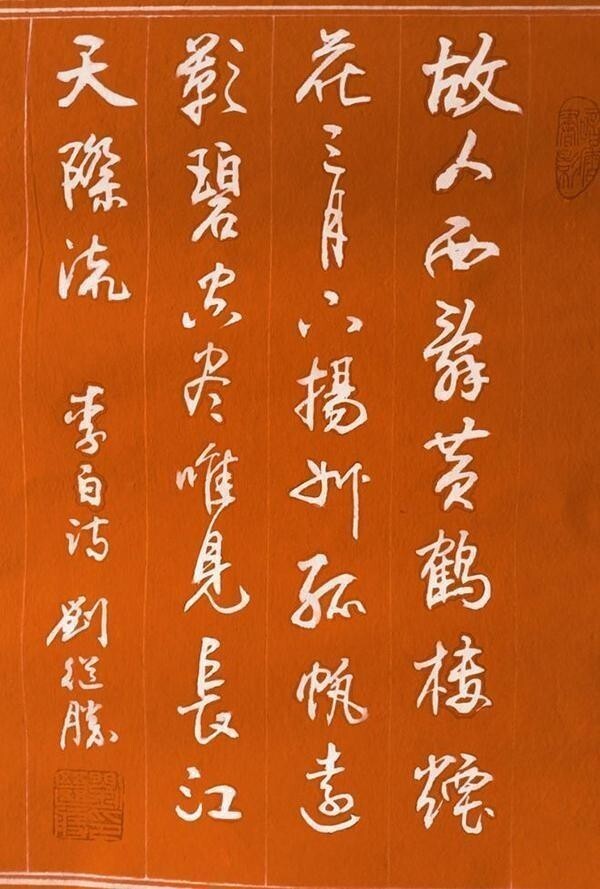 故人西辞黄鹤楼煙
花三月下揚州孤帆遠
影碧空尽唯見長江
天際流
李白詩 劉從勝